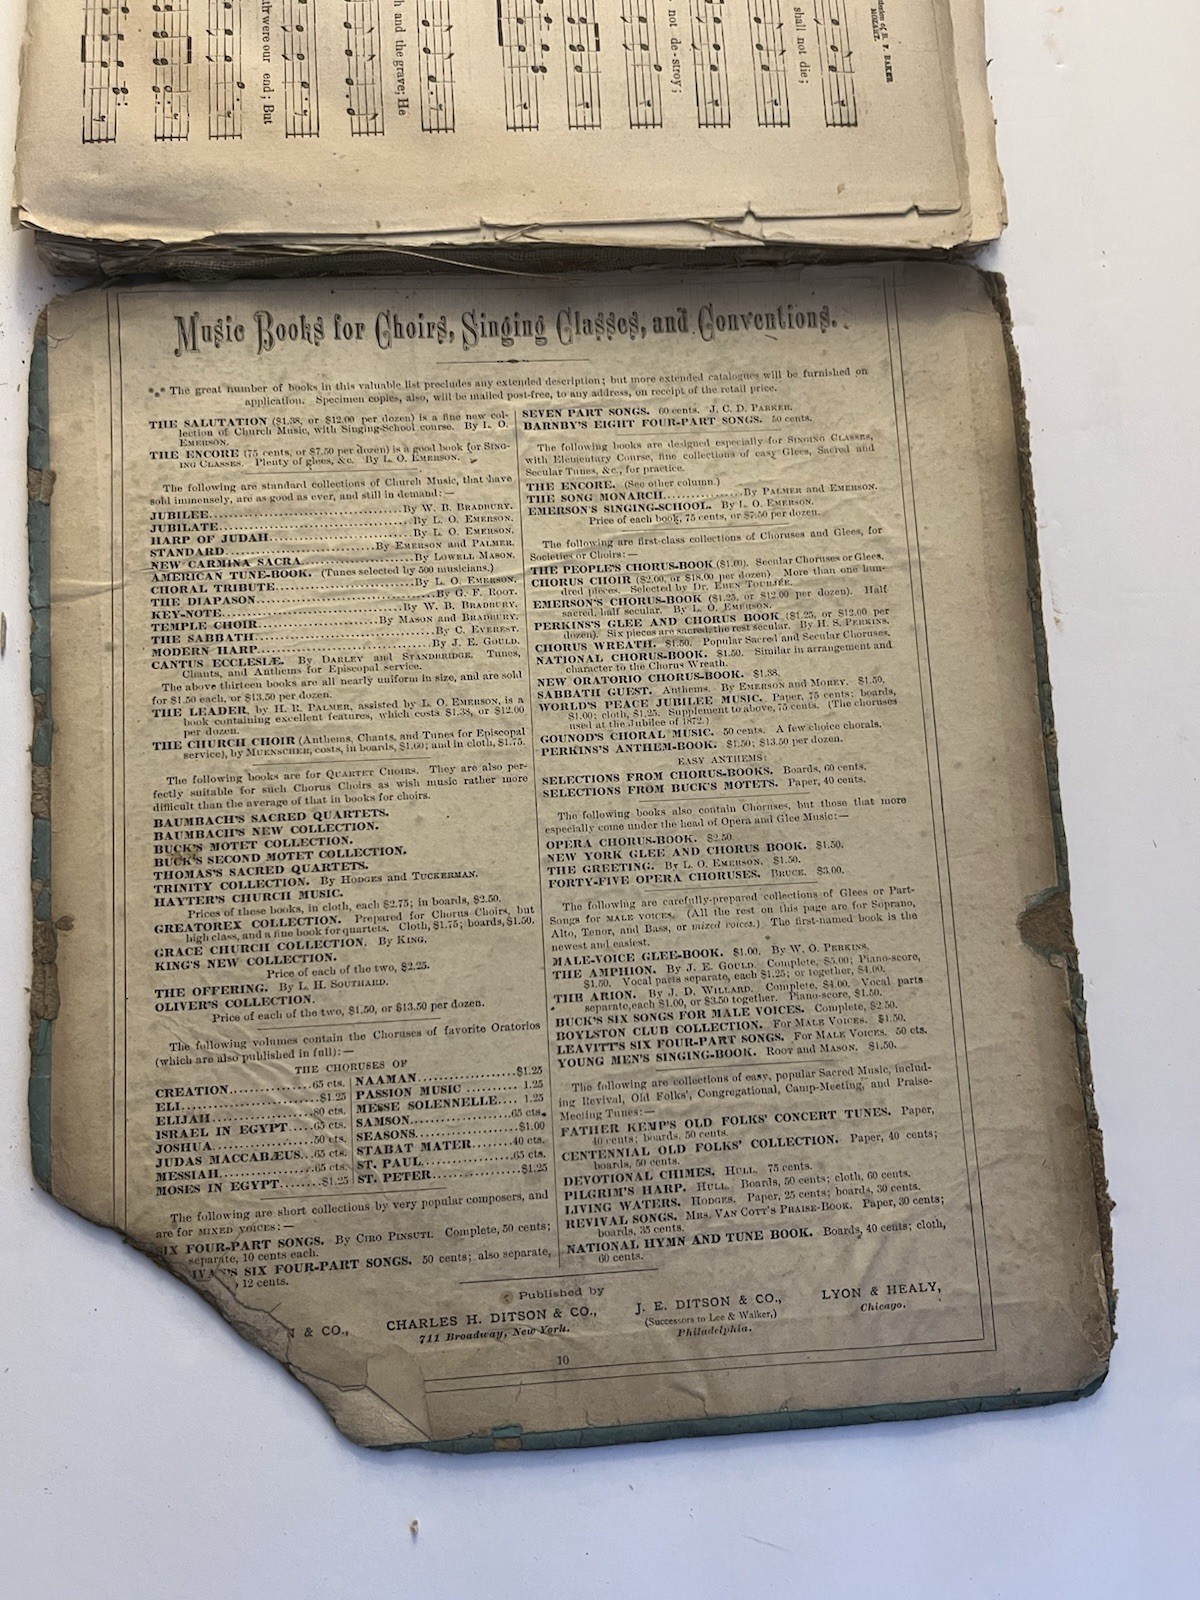 rthies of B. F. BAKER
MOZART.
shall not die;
not de - stroy;
h and the grave; He
ath were our end; But
Music Books for Choirs, Singing Classes, and Conventions.
*** The great number of books in this valuable list precludes any extended description; but more extended catalogues will be furnished on
application. Specimen copies, also, will be mailed post-free, to any address, on receipt of the retail price.
THE SALUTATION ($1.38, or $12.00 per dozen) is a fine new col-
lection of Church Music, with Singing-School course. By L. O.
EMERSON.
THE ENCORE (75 cents, or $7.50 per dozen) is a good book for SING-
ING CLASSES. Plenty of glees, &c. By L. O. EMERSON.
The following are standard collections of Church Music, that have
sold immensely, are as good as ever, and still in demand: —
JUBILEE..........By W. B. BRADBURY.
JUBILATE..........By L. O. EMERSON.
HARP OF JUDAH..........By L. O. EMERSON.
STANDARD..........By EMERSON and PALMER.
NEW CARMINA SACRA..........By LOWELL MASON.
AMERICAN TUNE-BOOK. (Tunes selected by 500 musicians.)
CHORAL TRIBUTE..........By L. O. EMERSON.
THE DIAPASON..........By G. F. ROOT.
KEY-NOTE..........By W. B. BRADBURY.
TEMPLE CHOIR..........By MASON and BRADBURY.
THE SABBATH..........By C. EVEREST.
MODERN HARP..........By J. E. GOULD.
CANTUS ECCLESIÆ. By DARLEY and STANDBRIDGE. Tunes,
Chants, and Anthems for Episcopal service.
The above thirteen books are all nearly uniform in size, and are sold
for $1.50 each, or $13.50 per dozen.
THE LEADER, by H. R. PALMER, assisted by L. O. EMERSON, is a
book containing excellent features, which costs $1.38, or $12.00
per dozen.
THE CHURCH CHOIR (Anthems, Chants, and Tunes for Episcopal
service), by MUENSCHER, costs, in boards, $1.60; and in cloth, $1.75.
The following books are for QUARTET CHOIRS. They are also per-
fectly suitable for such Chorus Choirs as wish music rather more
difficult than the average of that in books for choirs.
BAUMBACH'S SACRED QUARTETS.
BAUMBACH'S NEW COLLECTION.
BUCK'S MOTET COLLECTION.
BUCK'S SECOND MOTET COLLECTION.
THOMAS'S SACRED QUARTETS.
TRINITY COLLECTION. By HODGES and TUCKERMAN.
HAYTER'S CHURCH MUSIC.
Prices of these books, in cloth, each $2.75; in boards, $2.50.
GREATOREX COLLECTION. Prepared for Chorus Choirs, but
high class, and a fine book for quartets. Cloth, $1.75; boards, $1.50.
GRACE CHURCH COLLECTION. By KING.
KING'S NEW COLLECTION.
Price of each of the two, $2.25.
THE OFFERING. By L. H. SOUTHARD.
OLIVER'S COLLECTION.
Price of each of the two, $1.50, or $13.50 per dozen.
The following volumes contain the Choruses of favorite Oratorios
(which are also published in full): —
THE CHORUSES OF
CREATION..........65 cts.
ELI..........$1.25
ELIJAH..........80 cts.
ISRAEL IN EGYPT.....65 cts.
JOSHUA..........50 cts.
JUDAS MACCABÆUS...65 cts.
MESSIAH..........65 cts.
MOSES IN EGYPT........$1.25
NAAMAN..........$1.25
PASSION MUSIC .......... 1.25
MESSE SOLENNELLE.... 1.25
SAMSON..........65 cts.
SEASONS..........$1.00
STABAT MATER........40 cts.
ST. PAUL..........65 cts.
ST. PETER..........$1.25
The following are short collections by very popular composers, and
are for MIXED VOICES: —
SIX FOUR-PART SONGS. By CIRO PINSUTI. Complete, 50 cents;
separate, 10 cents each.
IVAN'S SIX FOUR-PART SONGS. 50 cents; also separate,
12 cents.
SEVEN PART SONGS. 60 cents. J. C. D. PARKER.
BARNBY'S EIGHT FOUR-PART SONGS. 50 cents.
The following books are designed especially for SINGING CLASSES,
with Elementary Course, fine collections of easy Glees, Sacred and
Secular Tunes, &c., for practice.
THE ENCORE. (See other column.)
THE SONG MONARCH..........By PALMER and EMERSON.
EMERSON'S SINGING-SCHOOL. By L. O. EMERSON.
Price of each book, 75 cents, or $7.50 per dozen.
The following are first-class collections of Choruses and Glees, for
Societies or Choirs: —
THE PEOPLE'S CHORUS-BOOK ($1.00). Secular Choruses or Glees.
CHORUS CHOIR ($2.00, or $18.00 per dozen). More than one hun-
dred pieces. Selected by Dr. EBEN TOURJÉE.
EMERSON'S CHORUS-BOOK ($1.25, or $12.00 per dozen). Half
sacred, half secular. By L. O. EMERSON.
PERKINS'S GLEE AND CHORUS BOOK ($1.25, or $12.00 per
dozen). Six pieces are sacred, the rest secular. By H. S. PERKINS.
CHORUS WREATH. $1.50. Popular Sacred and Secular Choruses.
NATIONAL CHORUS-BOOK. $1.50. Similar in arrangement and
character to the Chorus Wreath.
NEW ORATORIO CHORUS-BOOK. $1.38.
SABBATH GUEST. Anthems. By EMERSON and MOREY. $1.50.
WORLD'S PEACE JUBILEE MUSIC. Paper, 75 cents; boards,
$1.00; cloth, $1.25. Supplement to above, 75 cents. (The choruses
used at the Jubilee of 1872.)
GOUNOD'S CHORAL MUSIC. 50 cents. A few choice chorals.
PERKINS'S ANTHEM-BOOK. $1.50; $13.50 per dozen.
EASY ANTHEMS:
SELECTIONS FROM CHORUS-BOOKS. Boards, 60 cents.
SELECTIONS FROM BUCK'S MOTETS. Paper, 40 cents.
The following books also contain Choruses, but those that more
especially come under the head of Opera and Glee Music: —
OPERA CHORUS-BOOK. $2.50.
NEW YORK GLEE AND CHORUS BOOK. $1.50.
THE GREETING. By L. O. EMERSON. $1.50.
FORTY-FIVE OPERA CHORUSES. BRUCE. $3.00.
The following are carefully-prepared collections of Glees or Part-
Songs for MALE VOICES. (All the rest on this page are for Soprano,
Alto, Tenor, and Bass, or mixed voices.) The first-named book is the
newest and easiest.
MALE-VOICE GLEE-BOOK. $1.00. By W. O. PERKINS.
THE AMPHION. By J. E. GOULD. Complete, $5.00; Piano-score,
$1.50. Vocal parts separate, each $1.25; or together, $4.00.
THE ARION. By J. D. WILLARD. Complete, $4.00. Vocal parts
separate, each $1.00, or $3.50 together. Piano-score, $1.50.
BUCK'S SIX SONGS FOR MALE VOICES. Complete, $2.50.
BOYLSTON CLUB COLLECTION. For MALE VOICES. $1.50.
LEAVITT'S SIX FOUR-PART SONGS. For MALE VOICES. 50 cts.
YOUNG MEN'S SINGING-BOOK. ROOT and MASON. $1.50.
The following are collections of easy, popular Sacred Music, includ-
ing Revival, Old Folks', Congregational, Camp-Meeting, and Praise-
Meeting Tunes: —
FATHER KEMP'S OLD FOLKS' CONCERT TUNES. Paper,
40 cents; boards, 50 cents.
CENTENNIAL OLD FOLKS' COLLECTION. Paper, 40 cents;
boards, 50 cents.
DEVOTIONAL CHIMES. HULL. 75 cents.
PILGRIM'S HARP. HULL. Boards, 50 cents; cloth, 60 cents.
LIVING WATERS. HODGES. Paper, 25 cents; boards, 30 cents.
REVIVAL SONGS. MRS. VAN COTT'S PRAISE-BOOK. Paper, 30 cents;
boards, 35 cents.
NATIONAL HYMN AND TUNE BOOK. Boards, 40 cents; cloth,
60 cents.
Published by
N & CO.,
CHARLES H. DITSON & CO.,
711 Broadway, New York.
J. E. DITSON & CO.,
(Successors to Lee & Walker,)
Philadelphia.
LYON & HEALY,
Chicago.
10